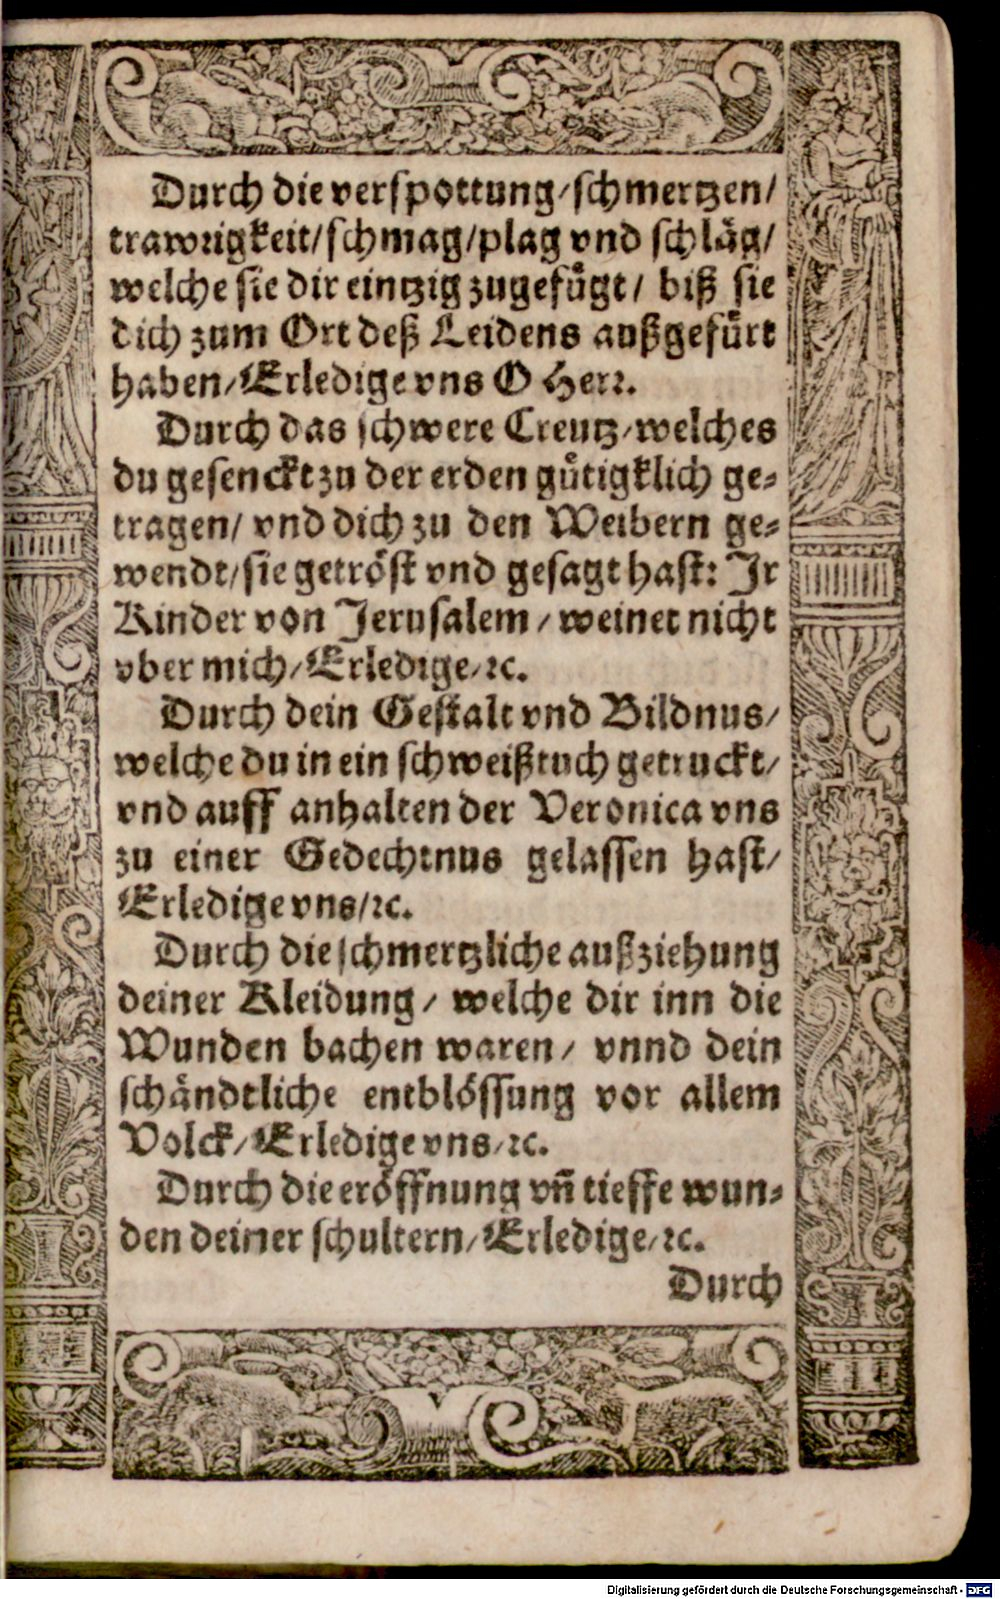 Durch die verspottung/schmertzen/
trawrigkeit/schmag/plag vnd schläg/
welche sie dir eintzig zugefügt/ biß sie
dich zum Ort deß Leidens außgefürt
haben/Erledige vns O Herr.
Durch das schwere Creutz/welches
du gesenckt zu der erden gütigklich ge-
tragen/ vnd dich zu den Weibern ge-
wendt/sie getröst vnd gesagt hast: Jr
Kinder von Jerusalem/weinet nicht
vber mich/Erledige/ꝛc.
Durch dein Gestalt vnd Bildnus/
welche du in ein schweißtuch getruckt/
vnd auff anhalten der Veronica vns
zu einer Gedechtnus gelassen hast/
Erledige vns/ꝛc.
Durch die schmertzliche außziehung
deiner Kleidung/ welche dir inn die
Wunden bachen waren/ vnnd dein
schändtliche entblössung vor allem
Volck/Erledige vns/ꝛc.
Durch die eröffnung vñ tieffe wun-
den deiner schultern/Erledige/ꝛc.
Durch
Digitalisierung gefördert durch die Deutsche Forschungsgemeinschaft - DFG